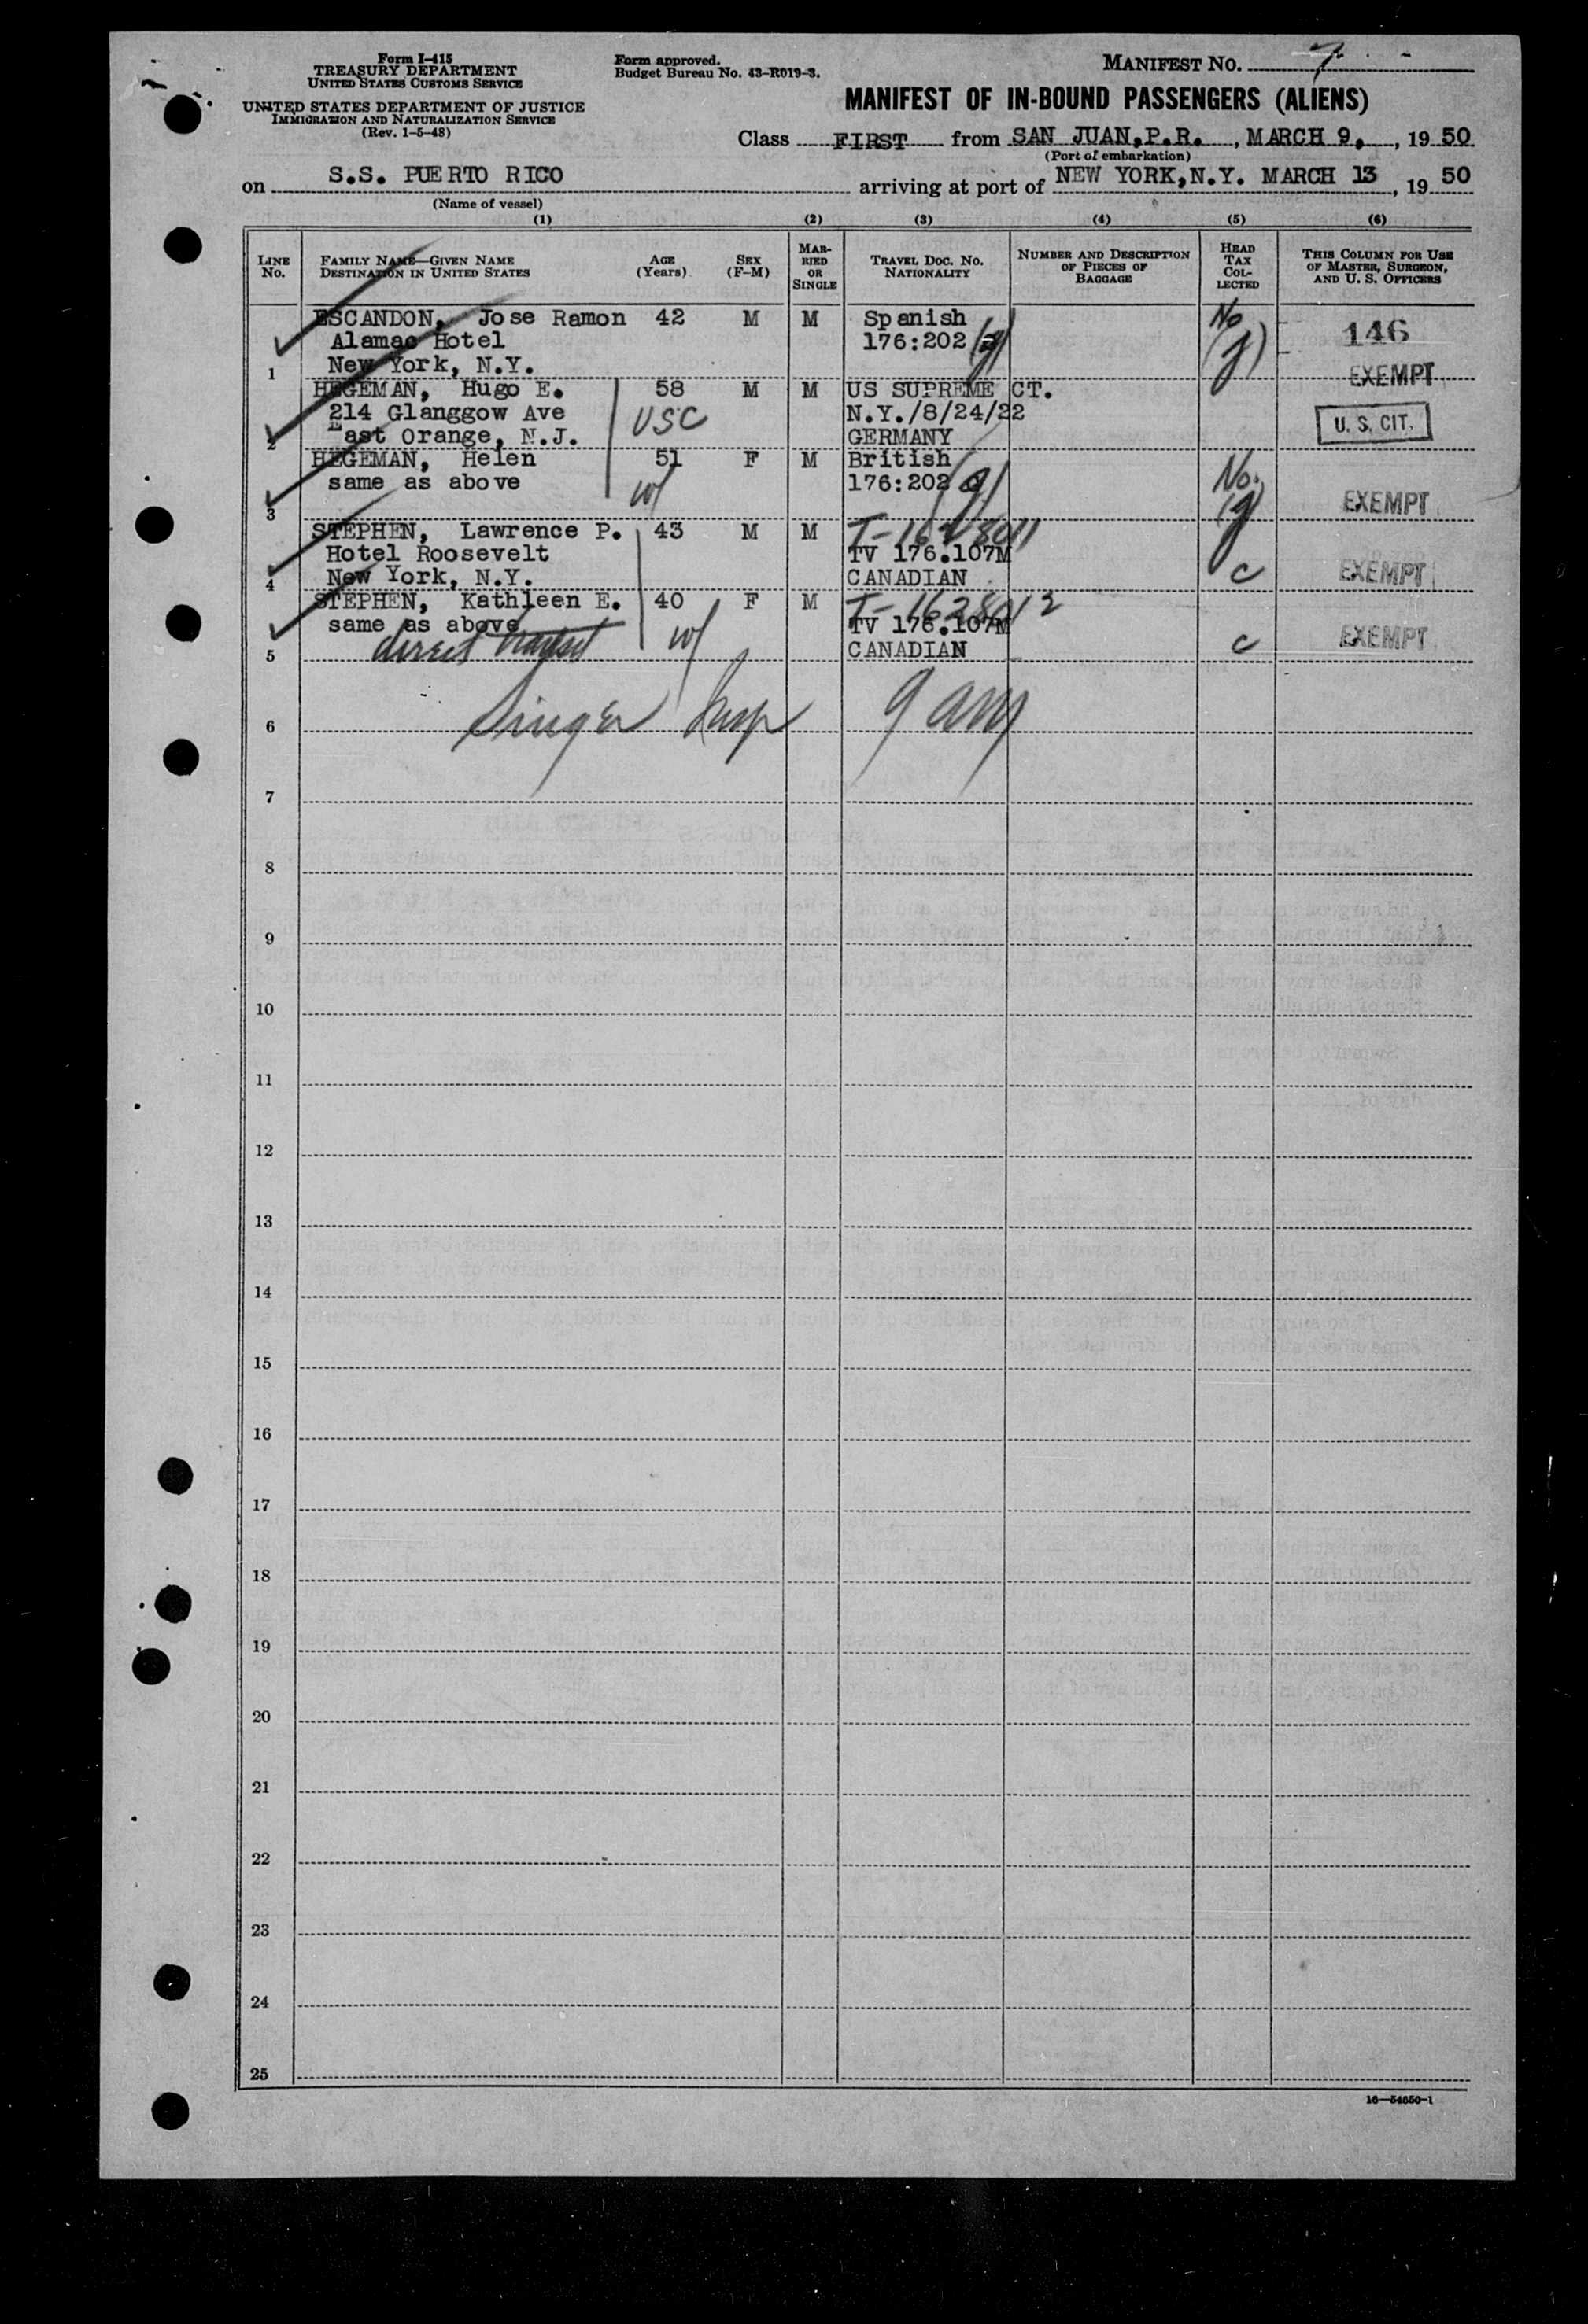 Form I-415
TREASURY DEPARTMENT
UNITED STATES CUSTOMS SERVICE
UNITED STATES DEPARTMENT OF JUSTICE
IMMIGRATION AND NATURALIZATION SERVICE
(Rev. 1-5-48)
Form approved.
Budget Bureau No. 43-R019-3.
MANIFEST NO. 7
MANIFEST OF IN-BOUND PASSENGERS (ALIENS)
Class FIRST from SAN JUAN,P.R. , MARCH 9, , 19 50
(Port of embarkation)
on S.S. PUERTO RICO arriving at port of NEW YORK,N.Y. MARCH 13 , 19 50
(Name of vessel)
(1) (2) (3) (4) (5) (6)
LINE No. FAMILY NAME—GIVEN NAME DESTINATION IN UNITED STATES AGE (Years) SEX (F-M) MARRIED OR SINGLE TRAVEL DOC. NO. NATIONALITY NUMBER AND DESCRIPTION OF PIECES OF BAGGAGE HEAD TAX COLLECTED THIS COLUMN FOR USE OF MASTER, SURGEON, AND U. S. OFFICERS
ESCANDON, Jose Ramon 42 M M Spanish No 146
Alamac Hotel 176:202 (g) (g)
1 New York, N.Y. EXEMPT
HEGEMAN, Hugo E. 58 M M US SUPREME CT.
214 Glanggow Ave USC N.Y./8/24/22 U. S. CIT.
2 East Orange, N.J. GERMANY
HEGEMAN, Helen 51 F M British No.
same as above w/ 176:202 (g) (g) EXEMPT
3
STEPHEN, Lawrence P. 43 M M T-1628011
Hotel Roosevelt TV 176.107M
4 New York, N.Y. CANADIAN c EXEMPT
STEPHEN, Kathleen E. 40 F M T-1628012
same as above w/ TV 176.107M
5 direct transit CANADIAN c EXEMPT
6 Singer Insp 9 am
7
8
9
10
11
12
13
14
15
16
17
18
19
20
21
22
23
24
25
16—54650-1